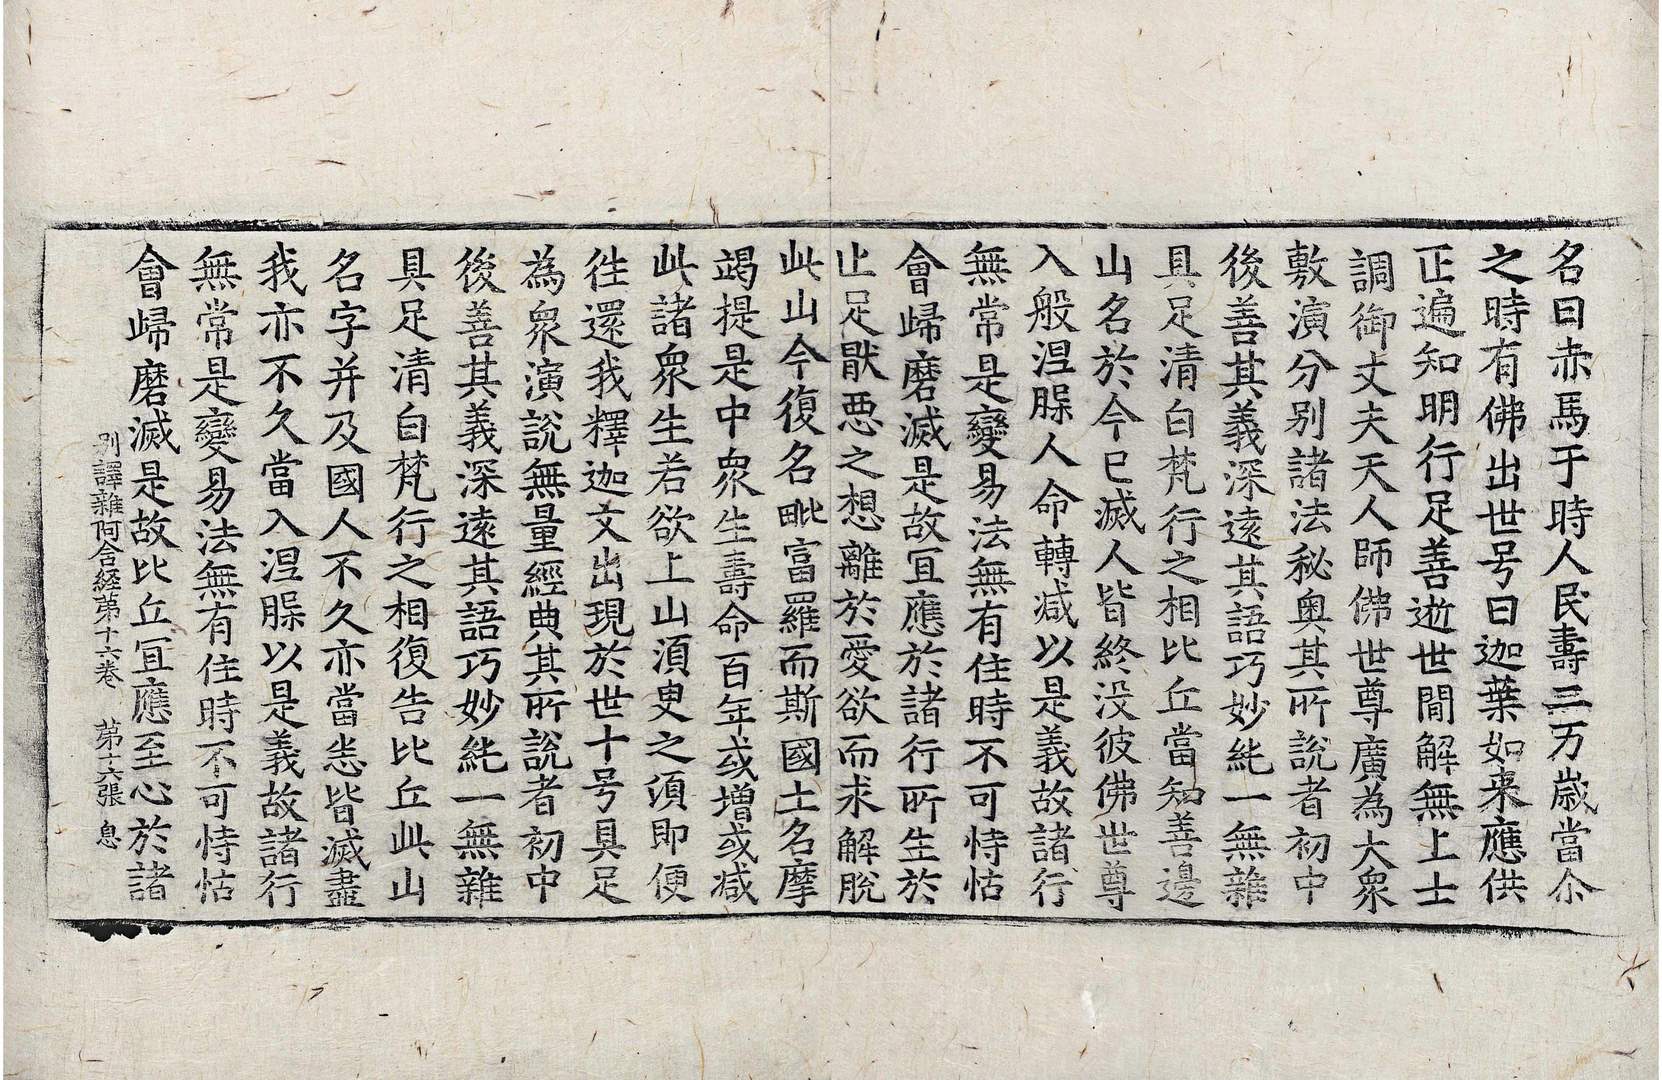 名曰赤馬于時人民壽三万歲當尒
之時有佛出世号曰迦葉如来應供
正遍知明行足善逝世間解無上士
調御丈夫天人師佛世尊廣為大衆
敷演分别諸法秘奥其所說者初中
後善其義深遠其語巧妙純一無雜
具足清白梵行之相比丘當知善邊
山名於今已滅人皆終没彼佛世尊
入般涅槃人命轉减以是義故諸行
無常是變易法無有住時不可恃怙
會歸磨滅是故冝應於諸行所生於
止足猒惡之想離於愛欲而求解脫
此山今復名毗富羅而斯國土名摩
竭提是中衆生壽命百年或增或减
此諸衆生若欲上山湏臾之湏即便
徃還我釋迦文出現於世十号具足
為衆演說無量經典其所說者初中
後善其義深遠其語巧妙純一無雜
具足清白梵行之相復告比丘此山
名字并及國人不久亦當悉皆滅盡
我亦不久當入涅槃以是義故諸行
無常是變易法無有住時不可恃怙
會歸磨滅是故比丘冝應至心於諸
别譯雜阿含経苐十六卷 苐十六張 息
六